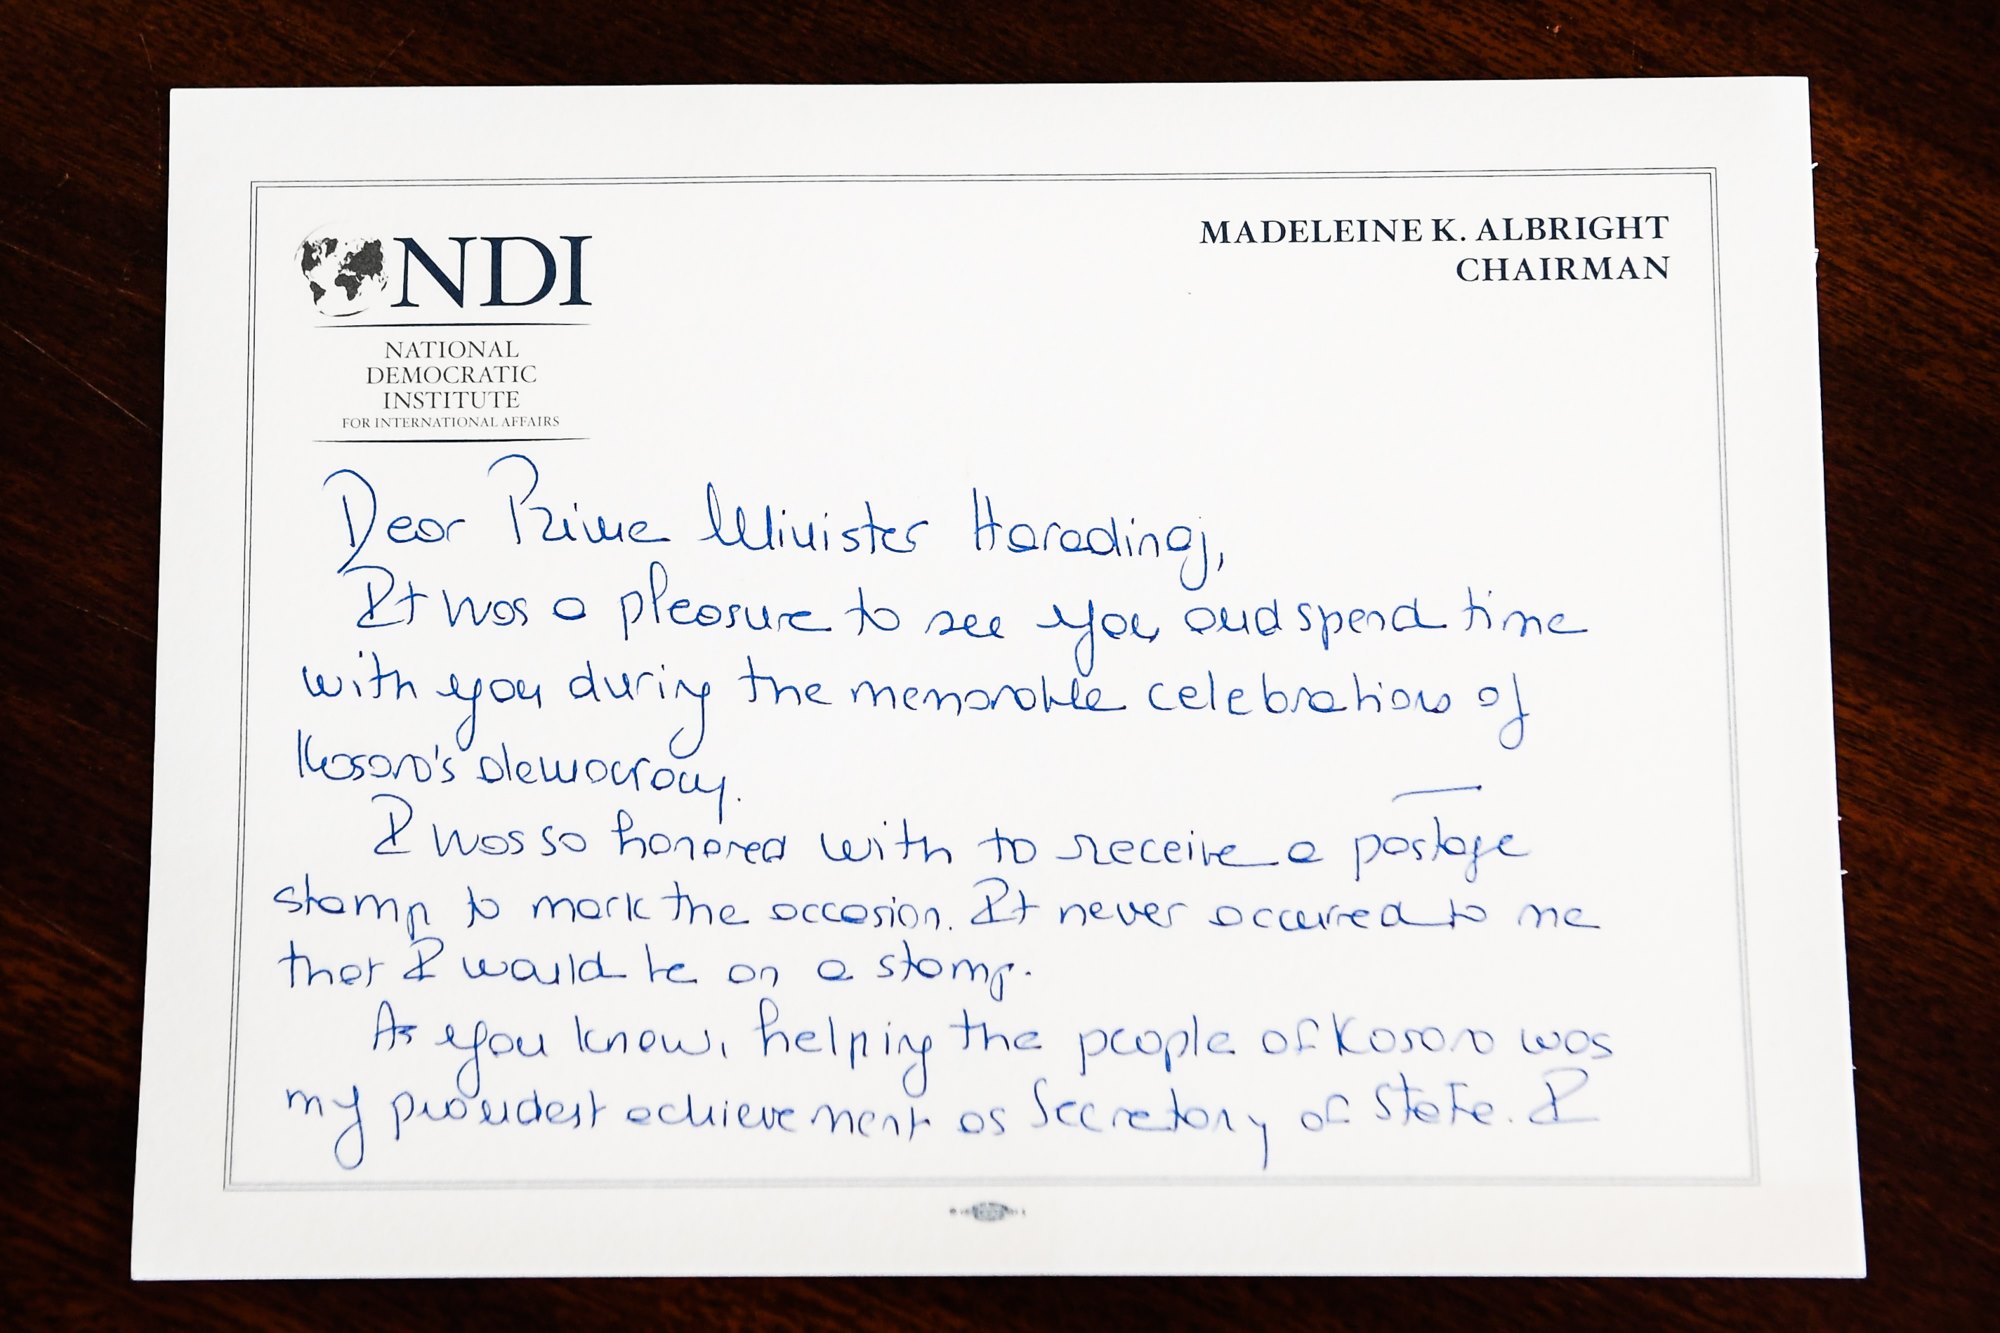 NDI
NATIONAL
DEMOCRATIC
INSTITUTE
FOR INTERNATIONAL AFFAIRS
MADELEINE K. ALBRIGHT
CHAIRMAN
Dear Prime Minister Haradinaj,
It was a pleasure to see you and spend time
with you during the memorable celebrations of
Kosovo's democracy.
I was so honored with to receive a postage
stamp to mark the occasion. It never occurred to me
that I would be on a stamp.
As you know, helping the people of Kosovo was
my proudest achievement as Secretary of State. I